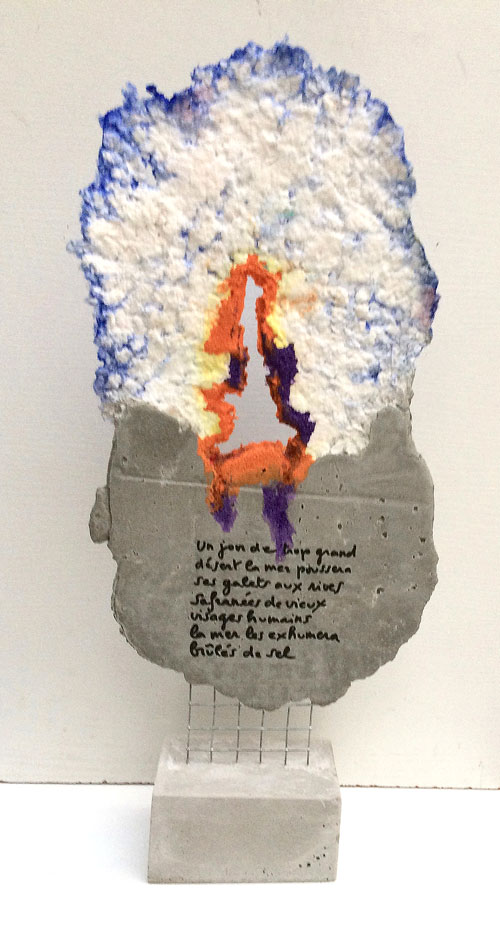 Un jour de trop grand
désert la mer poussera
ses galets aux rives
safranées de vieux
visages humains
la mer les exhumera
brûlés de sel